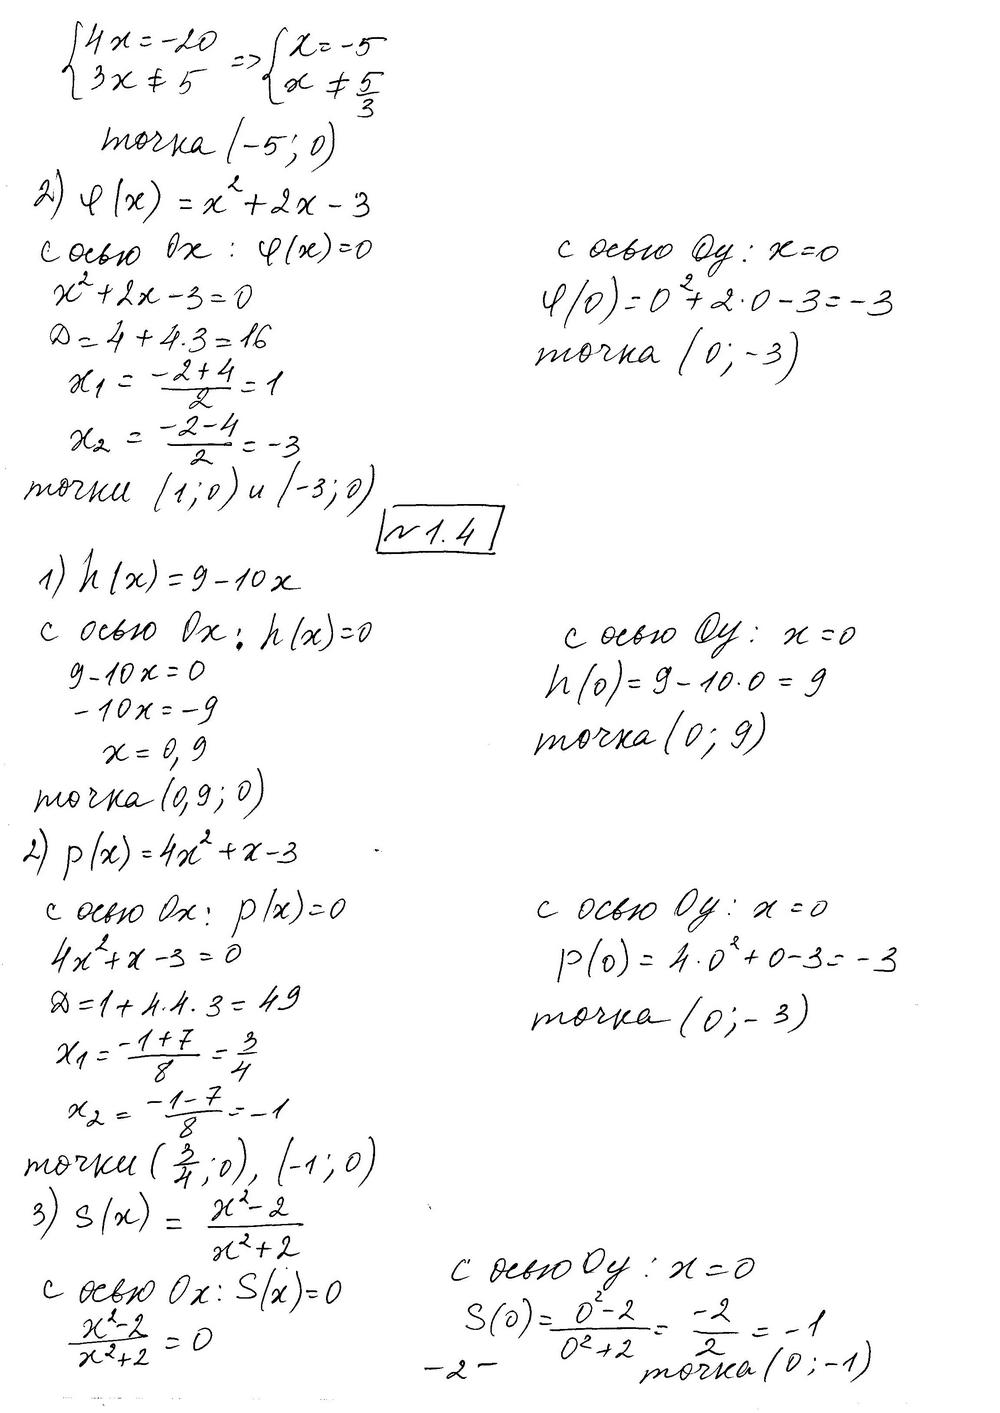 {4x = -20 => {x = -5
{3x ≠ 5 {x ≠ 5/3
точка (-5; 0)
2) φ(x) = x² + 2x - 3
с осью Ox : φ(x) = 0
x² + 2x - 3 = 0
D = 4 + 4·3 = 16
x₁ = (-2+4)/2 = 1
x₂ = (-2-4)/2 = -3
точки (1; 0) и (-3; 0)
с осью Oy : x = 0
φ(0) = 0² + 2·0 - 3 = -3
точка (0; -3)
№1.4
1) h(x) = 9 - 10x
с осью Ox : h(x) = 0
9 - 10x = 0
-10x = -9
x = 0,9
точка (0,9; 0)
с осью Oy : x = 0
h(0) = 9 - 10·0 = 9
точка (0; 9)
2) p(x) = 4x² + x - 3
с осью Ox : p(x) = 0
4x² + x - 3 = 0
D = 1 + 4·4·3 = 49
x₁ = (-1+7)/8 = 3/4
x₂ = (-1-7)/8 = -1
точки (3/4; 0), (-1; 0)
с осью Oy : x = 0
p(0) = 4·0² + 0 - 3 = -3
точка (0; -3)
3) S(x) = (x²-2)/(x²+2)
с осью Ox : S(x) = 0
(x²-2)/(x²+2) = 0
с осью Oy : x = 0
S(0) = (0²-2)/(0²+2) = -2/2 = -1
точка (0; -1)
-2-